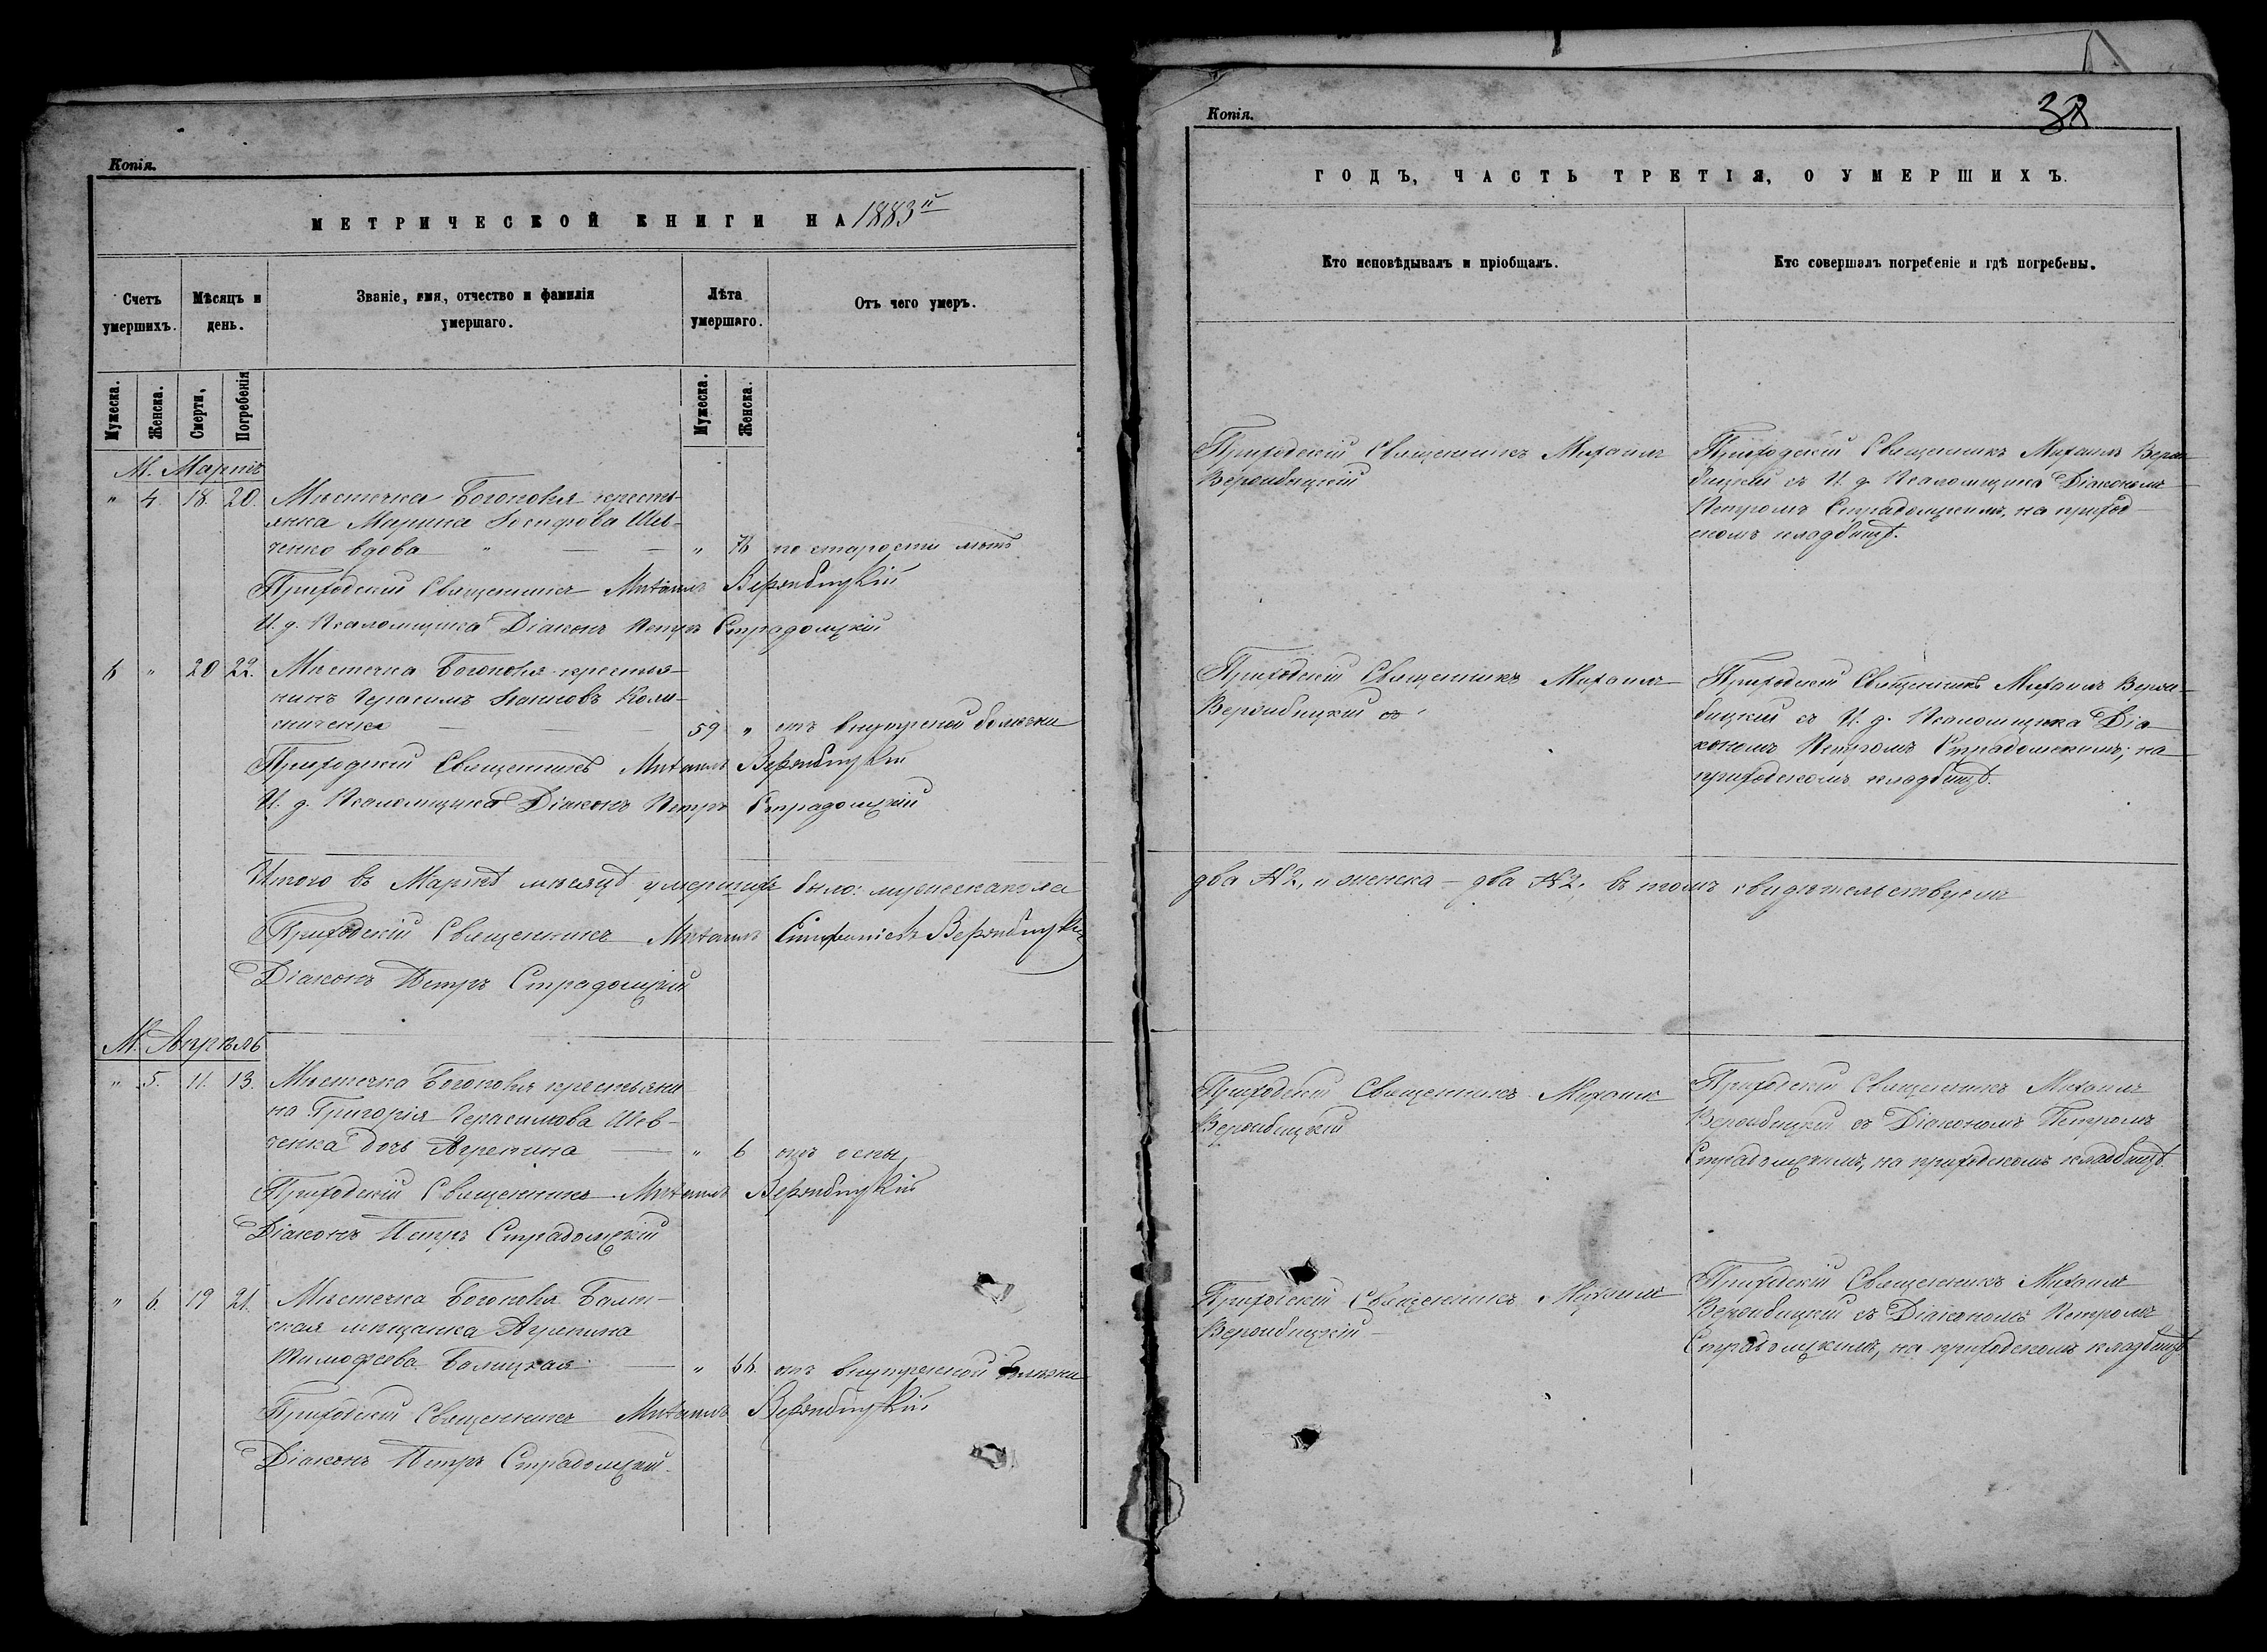 Копія.
МЕТРИЧЕСКОЙ КНИГИ НА 1883й
Счетъ умершихъ.
Мѣсяцъ и день.
Званіе, имя, отчество и фамилія умершаго.
Лѣта умершаго.
Отъ чего умеръ.
Мужеска.
Женска.
Смерти,
Погребенія
Мужеска.
Женска.
М. Мартъ
" 4. 18. 20. Мѣстечка Богополя кресть-
янка Марина Іосифова Шев-
ченко вдова " — — " по старости лѣтъ
Приходскій Священникъ Михаилъ Вержбицкій
И. д. Псаломщика Діаконъ Петръ Страдомскій
" 20 22. Мѣстечка Богополя крестья-
нинъ Герасимъ
— — 59 " отъ внутреней болѣзни
Приходскій Священникъ Михаилъ Вержбицкій
И. д. Псаломщика Діаконъ Петръ Страдомскій
Итого въ Мартѣ мѣсяцѣ умершихъ было: мужеска пола
Приходскій Священникъ Михаилъ Вержбицкій
Діаконъ Петръ Страдомскій
М. Апрѣль
" 5. 11. 13. Мѣстечка Богополя крестьяни-
на Григорія Герасимова Шев-
ченка дочь Агрепина — " 6 отъ оспы,
Приходскій Священникъ Михаилъ Вержбицкій
Діаконъ Петръ Страдомскій
" 6. 19 21. Мѣстечка Богополя Балт-
ская мѣщанка Агрепина
Тимофеева Балицкая — " 66. отъ внутренной болѣзни
Приходскій Священникъ Михаилъ Вержбицкій
Діаконъ Петръ Страдомскій.
Копія.
38
ГОДЪ, ЧАСТЬ ТРЕТІЯ, О УМЕРШИХЪ.
Кто исповѣдывалъ и пріобщалъ.
Кто совершалъ погребеніе и гдѣ погребены.
Приходскій Священникъ Михаилъ
Вержбицкій
Приходскій Священникъ Михаилъ Верж-
бицкій съ И. д. Псаломщика Діакономъ
Петромъ Страдомскимъ, на приход-
скомъ кладбищѣ.
Приходскій Священникъ Михаилъ
Вержбицкій
Приходскій Священникъ Михаилъ Верж-
бицкій съ И. д. Псаломщика Діа-
кономъ Петромъ Страдомскимъ, на
приходскомъ кладбищѣ.
два № 2, и женска — два № 2; въ томъ свидѣтельствуемъ
Приходскій Священникъ Михаилъ
Вержбицкій
Приходскій Священникъ Михаилъ
Вержбицкій съ Діакономъ Петромъ
Страдомскимъ, на приходскомъ кладбищѣ.
Приходскій Священникъ Михаилъ
Вержбицкій —
Приходскій Священникъ Михаилъ
Вержбицкій съ Діакономъ Петромъ
Страдомскимъ, на приходскомъ кладбищѣ